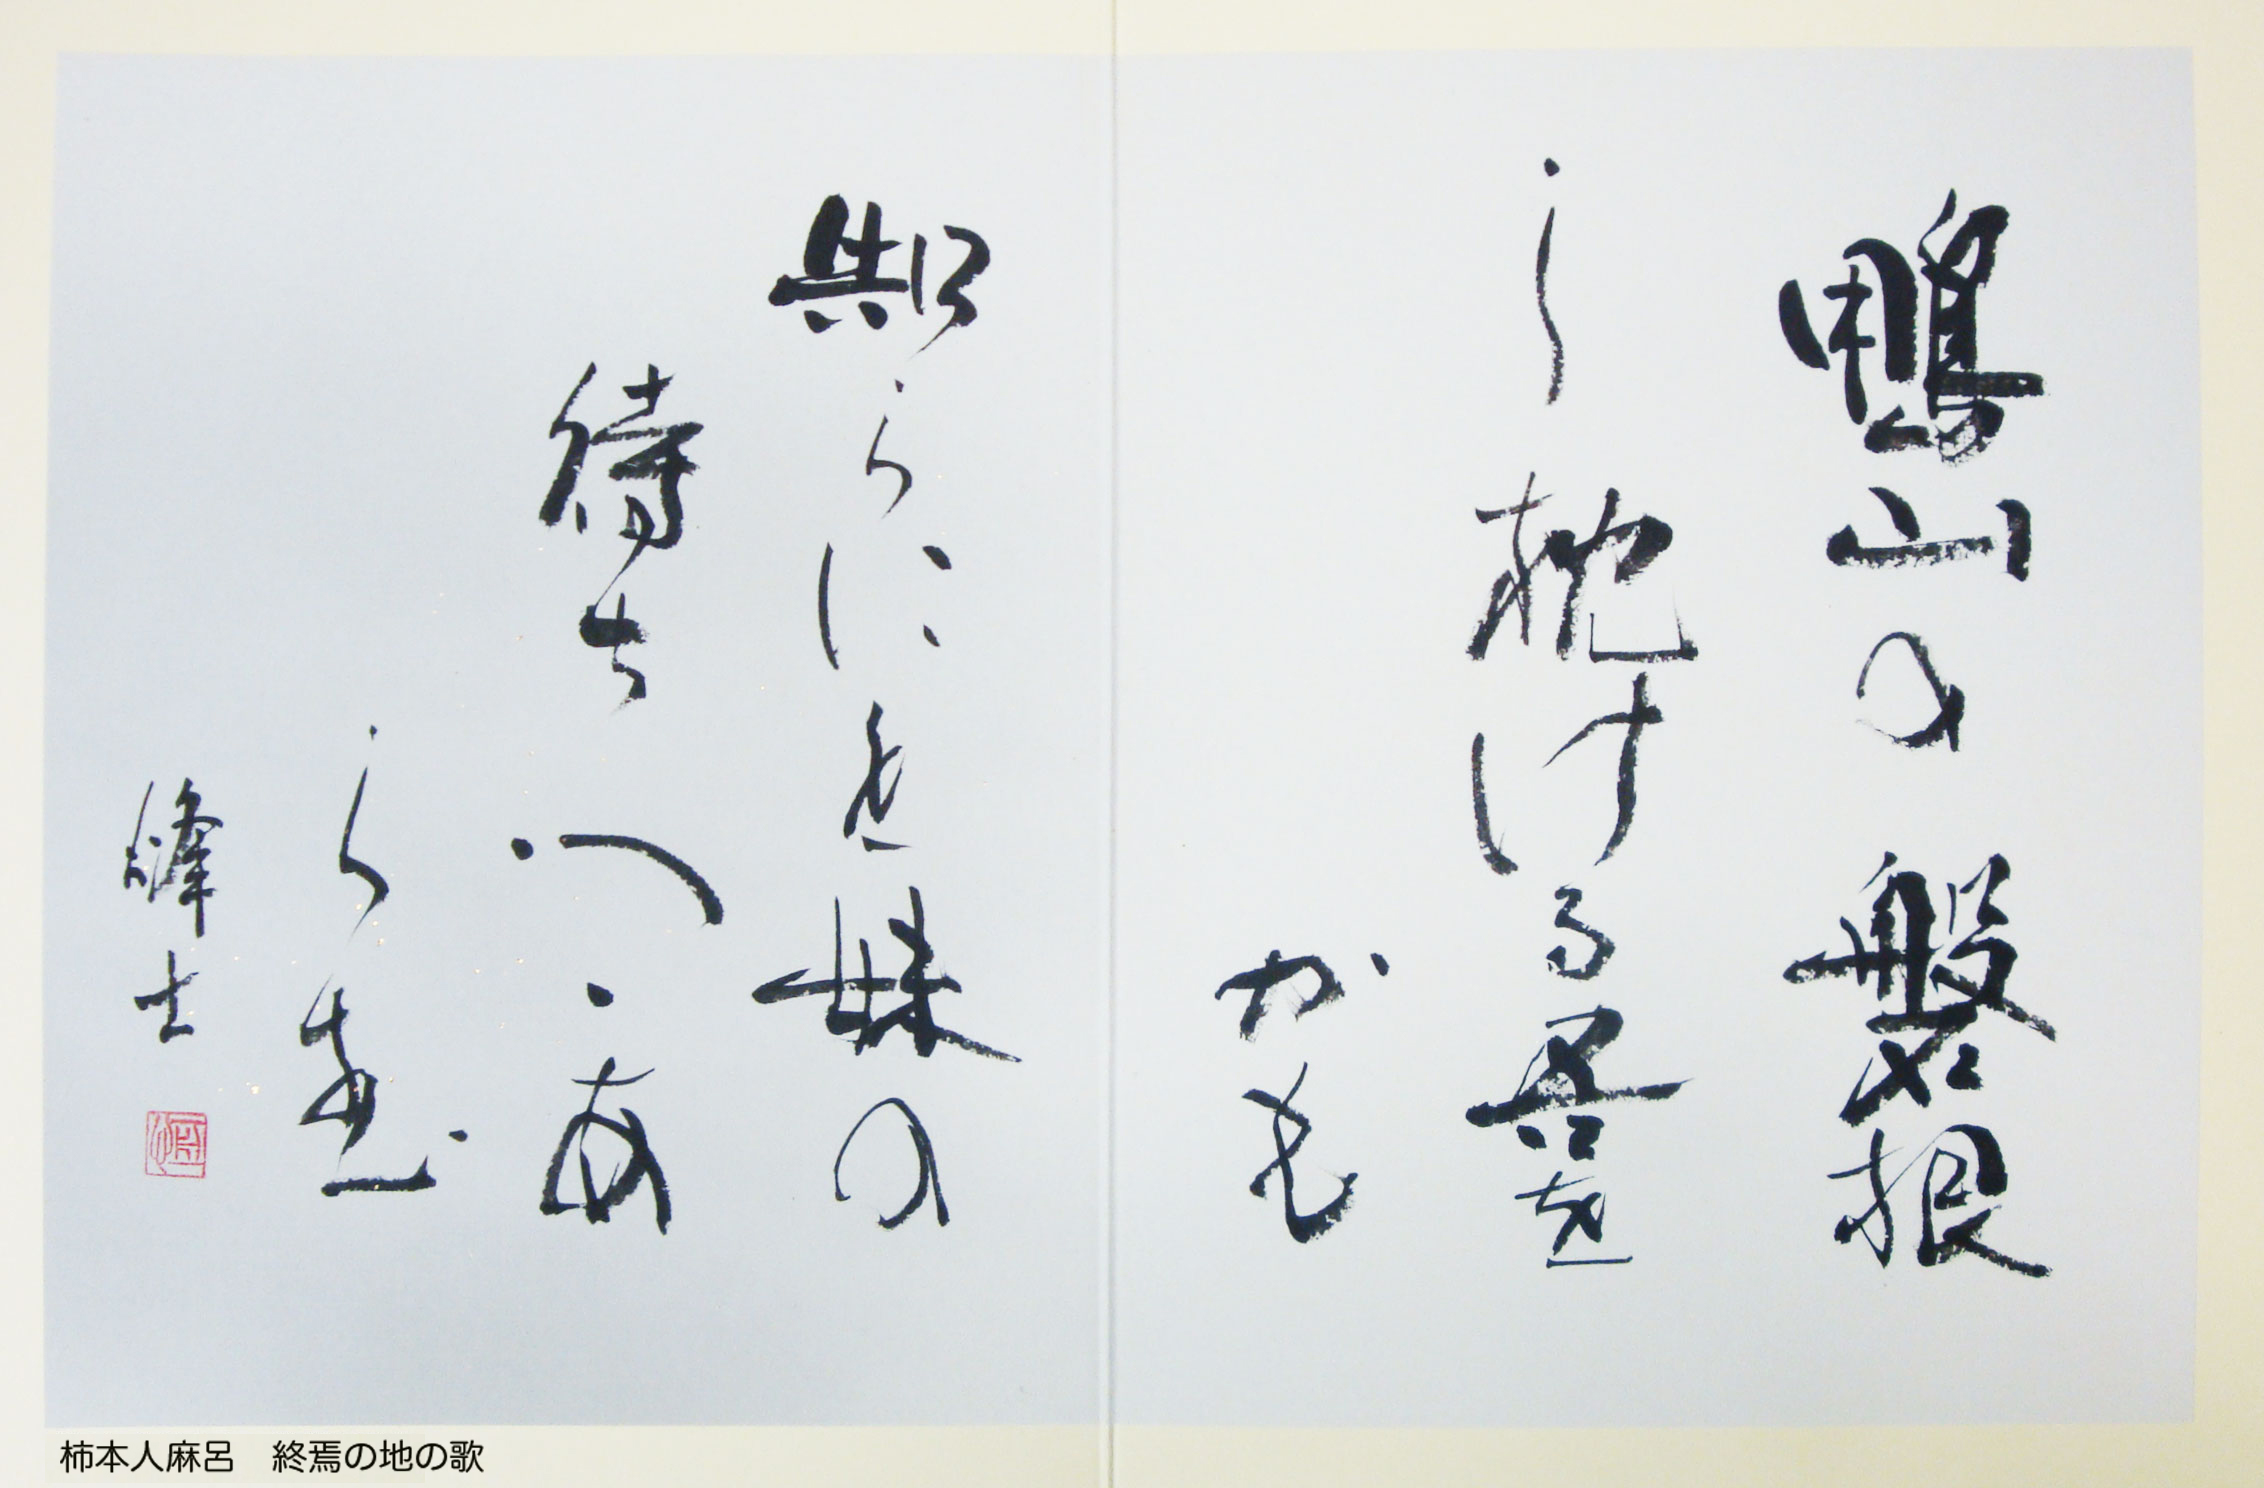 鴨山の磐根
し枕ける吾を
かも
知らにと妹の
待ちつゝあ
らむ
峰士
柿本人麻呂　終焉の地の歌